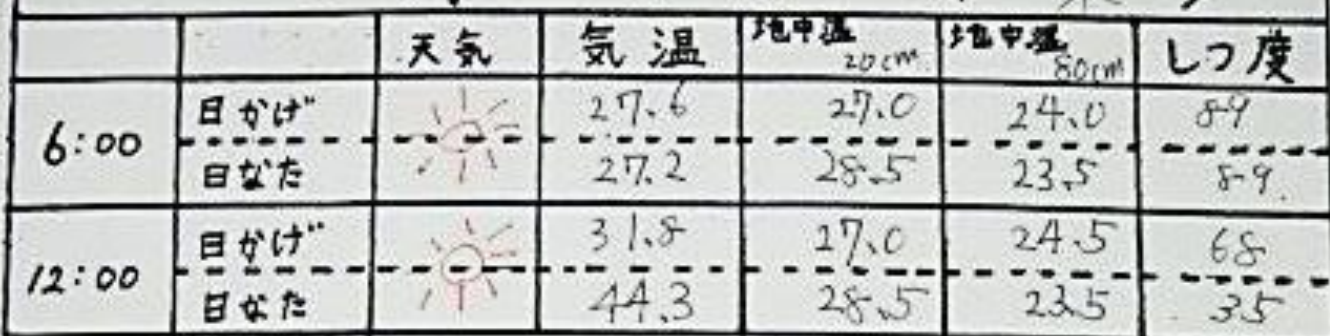 天気 気温 地中温 20cm 地中温 80cm しつ度
6:00 日かげ 27.6 27.0 24.0 89
日なた 27.2 28.5 23.5 89
12:00 日かげ 31.8 27.0 24.5 68
日なた 44.3 28.5 23.5 35